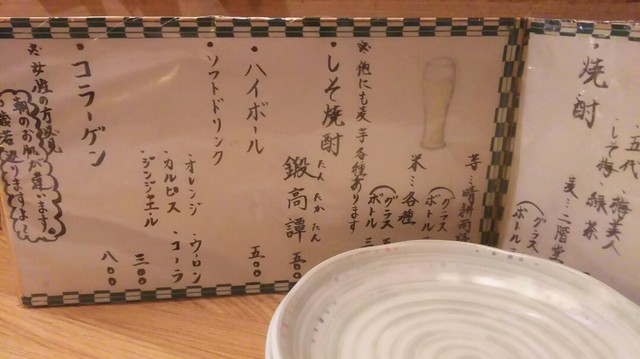 ・焼酎
五代・梅美人
しそ梅・緑茶
麦…二階堂
(グラス
ボトル
芋…晴耕雨
(グラス
ボトル
米…各種
(グラス
ボトル
※他にも麦芋各種あります
・しそ焼酎
たん たか たん
鍛高譚
・ハイボール
五〇〇
・ソフトドリンク
・オレンジ ・ウーロン
・カルピス ・コーラ
・ジンジャエール
三〇〇
・コラーゲン
八〇〇
※女性の方必見
朝のお肌が違います。